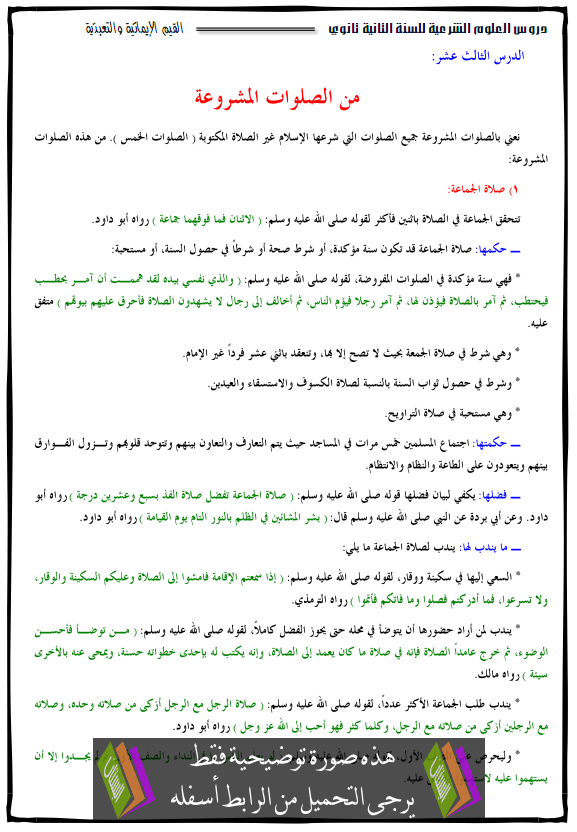 دروس العلوم الشرعية للسنة الثانية ثانوي القيم الإيمانية والتعبدية
الدرس الثالث عشر:
من الصلوات المشروعة
نعني بالصلوات المشروعة جميع الصلوات التي شرعها الإسلام غير الصلاة المكتوبة ( الصلوات الخمس ). من هذه الصلوات
المشروعة:
١) صلاة الجماعة:
تتحقق الجماعة في الصلاة باثنين فأكثر لقوله صلى الله عليه وسلم: ( الاثنان فما فوقهما جماعة ) رواه أبو داود.
ـــ حكمها: صلاة الجماعة قد تكون سنة مؤكدة، أو شرط صحة أو شرطاً في حصول السنة، أو مستحبة:
* فهي سنة مؤكدة في الصلوات المفروضة، لقوله صلى الله عليه وسلم: ( والذي نفسي بيده لقد هممت أن آمر بحطب
فيحتطب، ثم آمر بالصلاة فيؤذن لها، ثم آمر رجلا فيؤم الناس، ثم أخالف إلى رجال لا يشهدون الصلاة فأحرق عليهم بيوتهم ) متفق
عليه.
* وهي شرط في صلاة الجمعة بحيث لا تصح إلا بها، وتنعقد باثني عشر فرداً غير الإمام.
* وشرط في حصول ثواب السنة بالنسبة لصلاة الكسوف والاستسقاء والعيدين.
* وهي مستحبة في صلاة التراويح.
ـــ حكمتها: اجتماع المسلمين خمس مرات في المساجد حيث يتم التعارف والتعاون بينهم وتتوحد قلوبهم وتـزول الفـوارق
بينهم ويتعودون على الطاعة والنظام والانتظام.
ـــ فضلها: يكفي لبيان فضلها قوله صلى الله عليه وسلم: ( صلاة الجماعة تفضل صلاة الفذ بسبع وعشرين درجة ) رواه أبو
داود. وعن أبي بردة عن النبي صلى الله عليه وسلم قال: ( بشر المشائين في الظلم بالنور التام يوم القيامة ) رواه أبو داود.
ـــ ما يندب لها: يندب لصلاة الجماعة ما يلي:
* السعي إليها في سكينة ووقار، لقوله صلى الله عليه وسلم: ( إذا سمعتم الإقامة فامشوا إلى الصلاة وعليكم السكينة والوقار،
ولا تسرعوا، فما أدركتم فصلوا وما فاتكم فأتموا ) رواه الترمذي.
* يندب لمن أراد حضورها أن يتوضأ في محله حتى يحوز الفضل كاملاً، لقوله صلى الله عليه وسلم: ( مـن توضـأ فأحسـن
الوضوء، ثم خرج عامداً الصلاة فإنه في صلاة ما كان يعمد إلى الصلاة، وإنه يكتب له بإحدى خطواته حسنة، ويمحى عنه بالأخرى
سيئة ) رواه مالك.
* يندب طلب الجماعة الأكثر عدداً، لقوله صلى الله عليه وسلم: ( صلاة الرجل مع الرجل أزكى من صلاته وحده، وصلاته
مع الرجلين أزكى من صلاته مع الرجل، وكلما كثر فهو أحب إلى الله عز وجل ) رواه أبو داود.
* وليحرص الأول، النداء والصف يجـدوا إلا أن
يستهموا عليه عليه.
هذه صورة توضيحية فقط
يرجى التحميل من الرابط أسفله